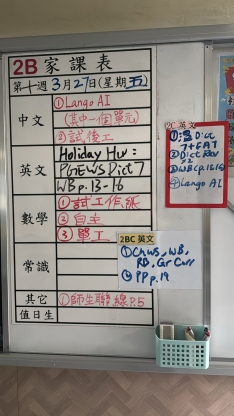 2B 家課表
第十週 3月27日(星期五)
中文
①Lango AI
(其中一個單元)
②試後工
英文
Holiday Hw:
PGEWS Dict 7
WB p.13-16
數學
①試工作紙
②自主
③單工
常識
其它
①師生聯線P.5
值日生
2C 英文
Dict
7+6A7
②Dict Rev
③WB p.13,15,16
④Lango AI
2BC 英文
①CWS, WB,
RB, Gr Curr
②PP p.19